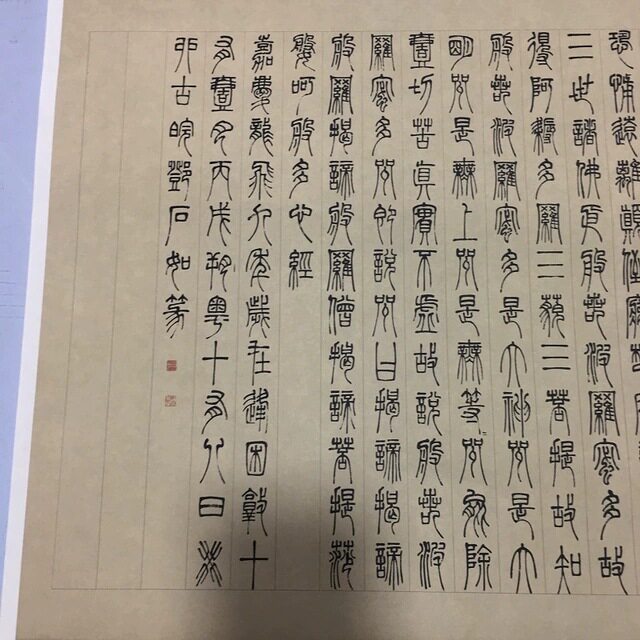 恐怖遠離顛倒夢
三世諸佛依般若波羅蜜多故
得阿耨多羅三藐三菩提故知
般若波羅蜜多是大神咒是大
明咒是無上咒是無等〻咒能除
壹切苦真實不虛故說般若波
羅蜜多咒即說咒曰揭諦揭諦
般羅揭諦般羅僧揭諦菩提薩
婆呵般多心經
嘉慶龍飛九年歲在逢困敦十
有壹月丙戌朔粵十有八日癸
卯古皖鄧石如篆